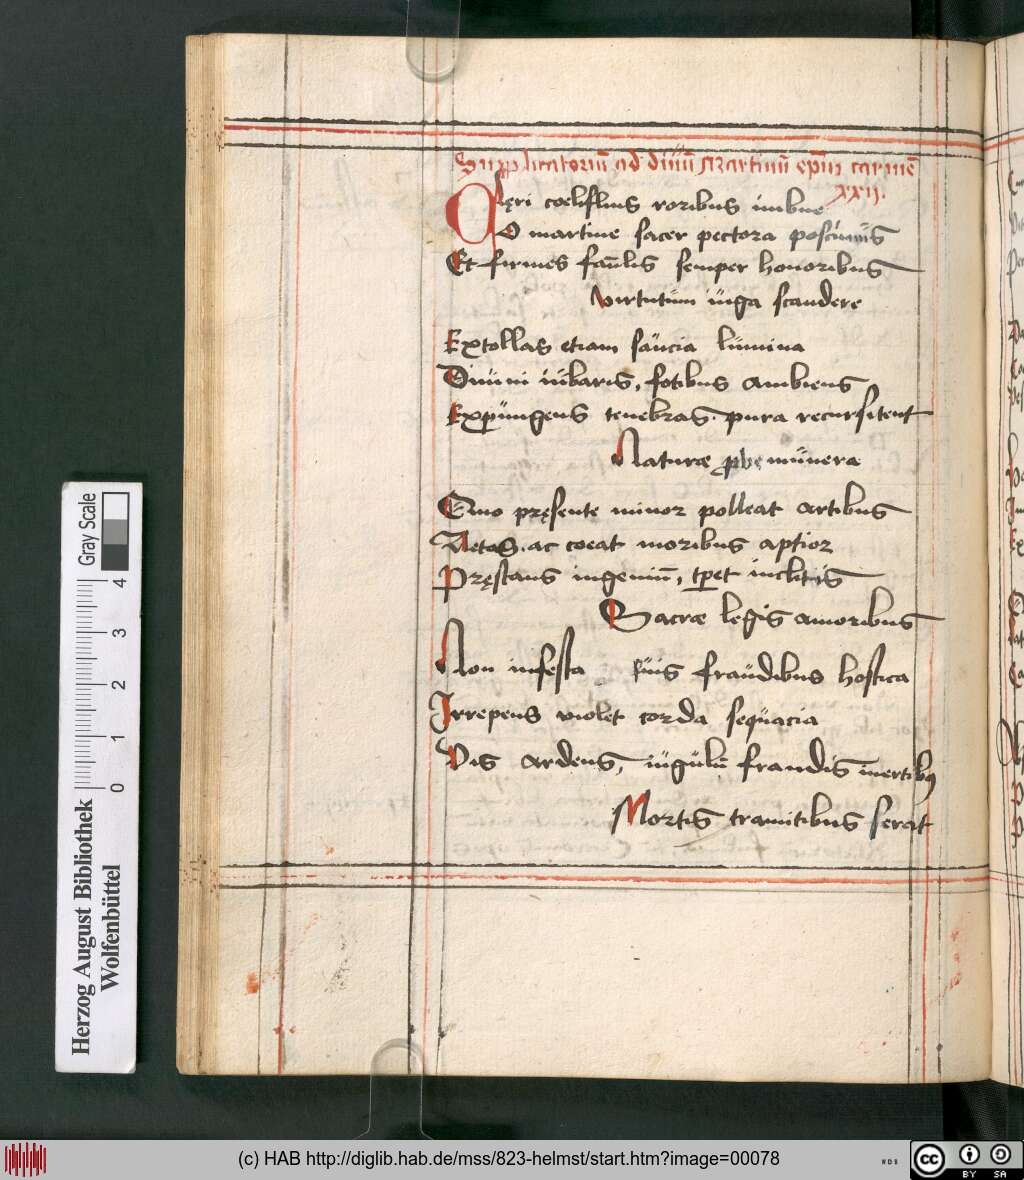 Supplicatoriū ad diuū Martinū epm̄ carmē
xxij.
Aęri coelifluis roribus imbue
O martine sacer pectora poscimus
Et firmes faūlis semper honoribus
virtutum iuga scandere
Extollas etiam saucia lumina
Diuini iubaris, fotibus ambiens
Expungens tenebras. pura recursitent
Naturæ munera
Quo pręsente minor polleat artibus
Aetas. ac coeat moribus aptior
Pręstans ingeniū, inclitis
Sacræ legis amoribus
Non infesta suis fraudibus hostica
Irrepens violet corda sequacia
Vis ardens, iugulū fraudis inertibꝰ
Mortis tramitibus ferat
Herzog August Bibliothek
Wolfenbüttel
Gray Scale
0 1 2 3 4
(c) HAB http://diglib.hab.de/mss/823-helmst/start.htm?image=00078
WDB
cc BY SA